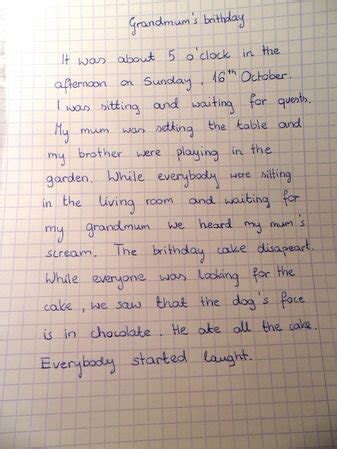 Grandmum's brithday
It was about 5 o'clock in the
afternoon on Sunday, 16th October.
I was sitting and waiting for quests.
My mum was setting the table and
my brother were playing in the
garden. While everybody were sitting
in the living room and waiting for
my grandmum we heard my mum's
scream. The brithday cake disapeart.
While everyone was looking for the
cake, we saw that the dog's face
is in chocolate. He ate all the cake.
Everybody started laught.